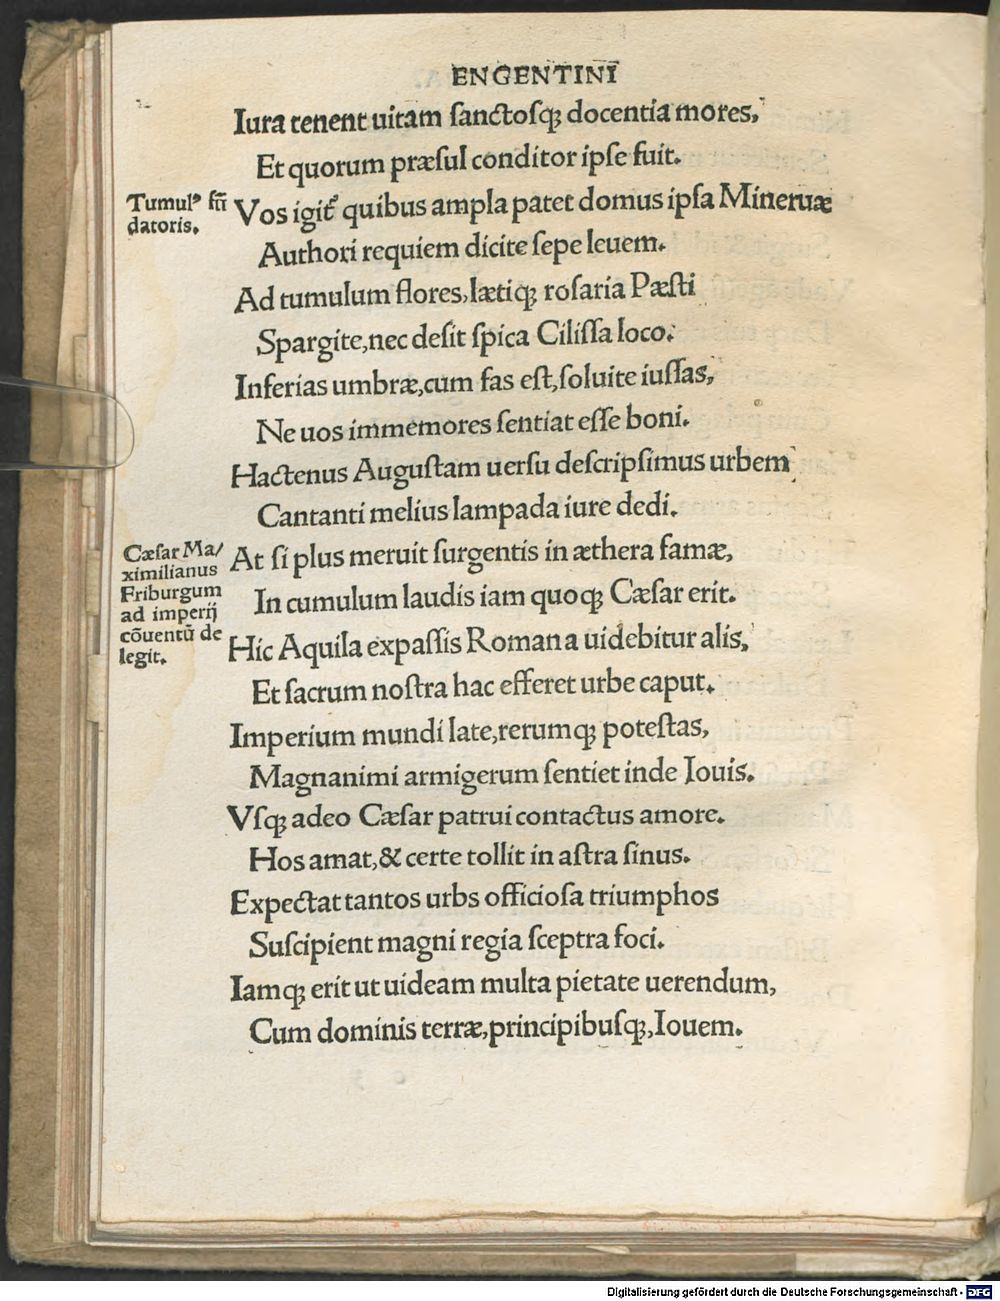 ENGENTINI
Iura tenent uitam sanctosq; docentia mores,
Et quorum præsul conditor ipse fuit.
Tumulꝰ fũ
datoris.
Vos igit᷑ quibus ampla patet domus ipsa Mineruæ
Authori requiem dicite sepe leuem.
Ad tumulum flores,lætiq; rosaria Pæsti
Spargite,nec desit spica Cilissa loco.
Inferias umbræ,cum fas est,soluite iussas,
Ne uos immemores sentiat esse boni.
Hactenus Augustam uersu descripsimus urbem
Cantanti melius lampada iure dedi.
Cæsar Ma/
ximilianus
Friburgum
ad imperij
cõuentũ de
legit.
At si plus meruit surgentis in æthera famæ,
In cumulum laudis iam quoq; Cæsar erit.
Hic Aquila expassis Romana uidebitur alis,
Et sacrum nostra hac efferet urbe caput.
Imperium mundi late,rerumq; potestas,
Magnanimi armigerum sentiet inde Iouis.
Vsq; adeo Cæsar patrui contactus amore.
Hos amat,& certe tollit in astra sinus.
Expectat tantos urbs officiosa triumphos
Suscipient magni regia sceptra foci.
Iamq; erit ut uideam multa pietate uerendum,
Cum dominis terræ,principibusq;,Iouem.
Digitalisierung gefördert durch die Deutsche Forschungsgemeinschaft - DFG